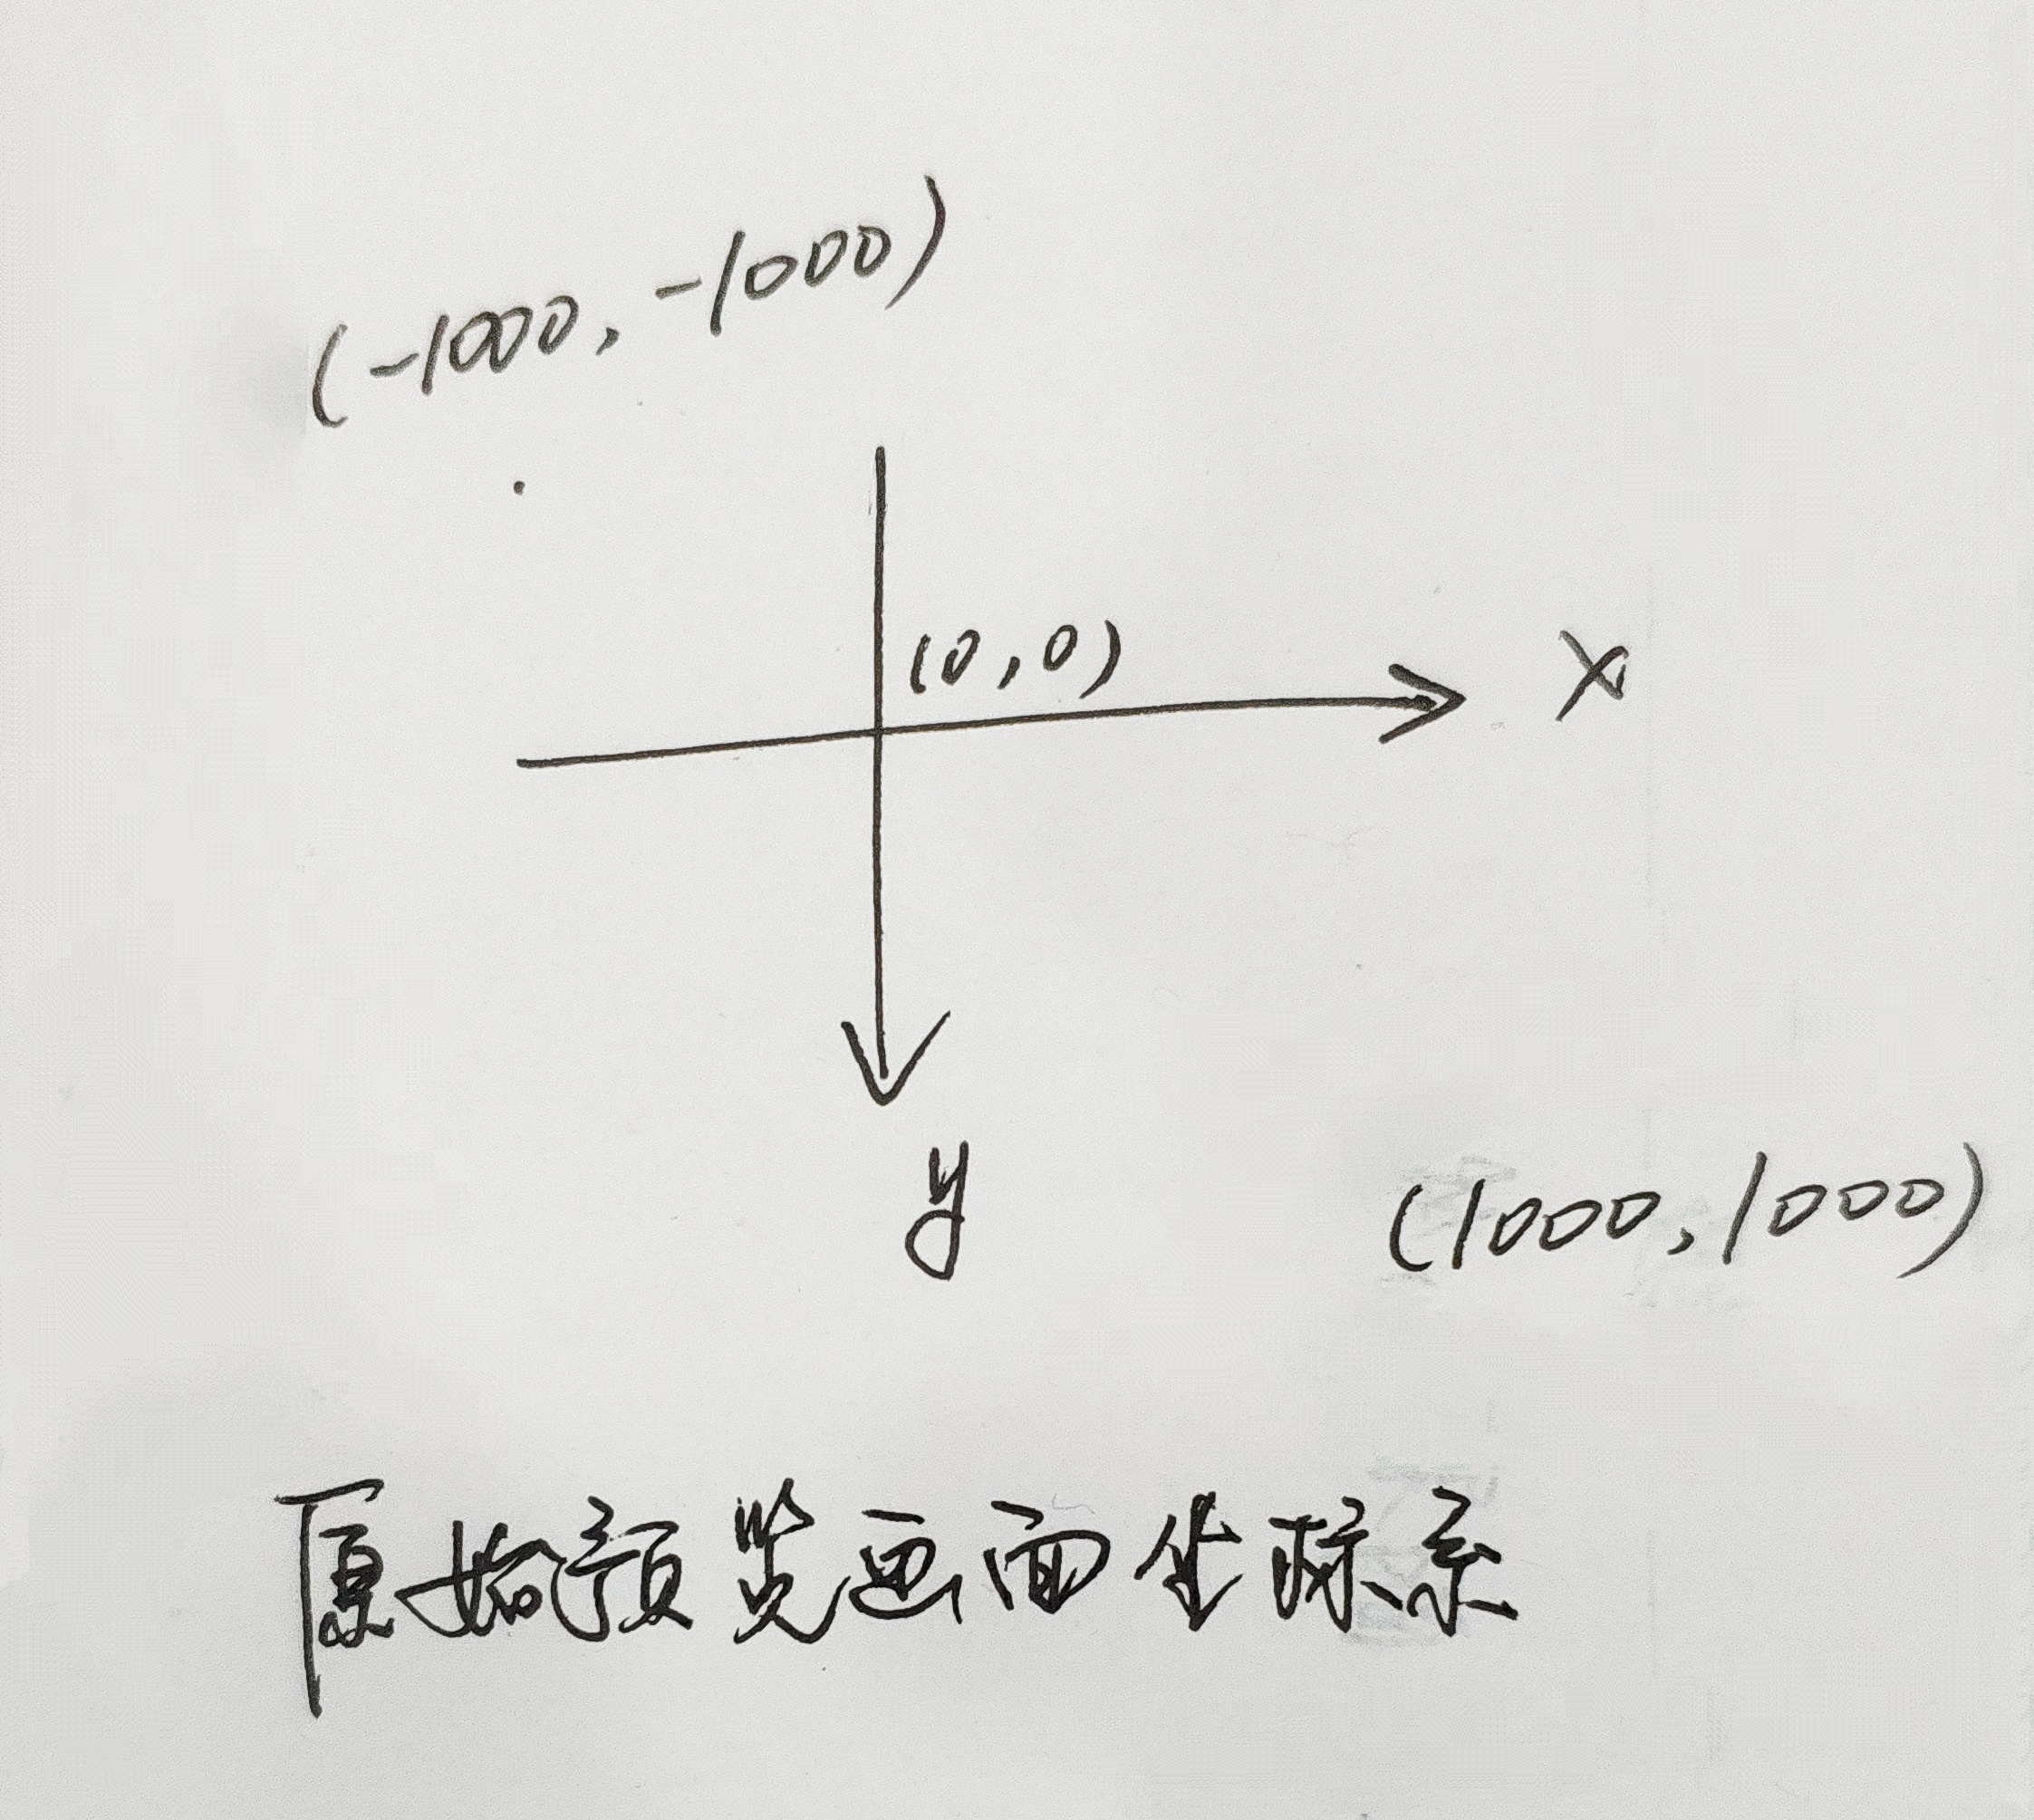 (-1000, -1000)
(0,0)
X
y
(1000,1000)
原始预览画面坐标系